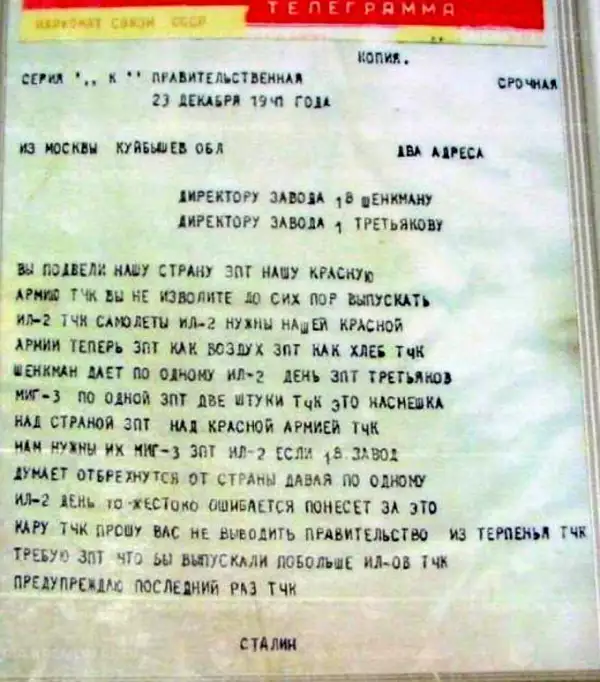 ТЕЛЕГРАММА
НАРКОМАТ СВЯЗИ СССР
КОПИЯ.
СЕРИЯ ",, К " ПРАВИТЕЛЬСТВЕННАЯ
СРОЧНАЯ
23 ДЕКАБРЯ 1941 ГОДА
ИЗ МОСКВЫ КУЙБЫШЕВ ОБЛ ДВА АДРЕСА
ДИРЕКТОРУ ЗАВОДА 18 ШЕНКМАНУ
ДИРЕКТОРУ ЗАВОДА 1 ТРЕТЬЯКОВУ
ВЫ ПОДВЕЛИ НАШУ СТРАНУ ЗПТ НАШУ КРАСНУЮ
АРМИЮ ТЧК ВЫ НЕ ИЗВОЛИТЕ ДО СИХ ПОР ВЫПУСКАТЬ
ИЛ-2 ТЧК САМОЛЕТЫ ИЛ-2 НУЖНЫ НАШЕЙ КРАСНОЙ
АРМИИ ТЕПЕРЬ ЗПТ КАК ВОЗДУХ ЗПТ КАК ХЛЕБ ТЧК
ШЕНКМАН ДАЕТ ПО ОДНОМУ ИЛ-2 ДЕНЬ ЗПТ ТРЕТЬЯКОВ
МИГ-3 ПО ОДНОЙ ЗПТ ДВЕ ШТУКИ ТЧК ЭТО НАСМЕШКА
НАД СТРАНОЙ ЗПТ НАД КРАСНОЙ АРМИЕЙ ТЧК
НАМ НУЖНЫ ИХ МИГ-3 ЗПТ ИЛ-2 ЕСЛИ 18 ЗАВОД
ДУМАЕТ ОТБРЕХНУТСЯ ОТ СТРАНЫ ДАВАЯ ПО ОДНОМУ
ИЛ-2 ДЕНЬ ТО ЖЕСТОКО ОШИБАЕТСЯ ПОНЕСЕТ ЗА ЭТО
КАРУ ТЧК ПРОШУ ВАС НЕ ВЫВОДИТЬ ПРАВИТЕЛЬСТВО ИЗ ТЕРПЕНЬЯ ТЧК
ТРЕБУЮ ЗПТ ЧТО БЫ ВЫПУСКАЛИ ПОБОЛЬШЕ ИЛ-ОВ ТЧК
ПРЕДУПРЕЖДАЮ ПОСЛЕДНИЙ РАЗ ТЧК
СТАЛИН